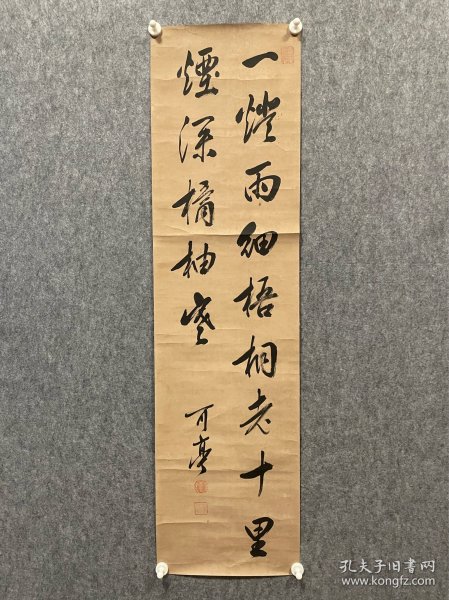 一燈雨細梧桐老十里
煙深橘柚寒
可亭
孔夫子旧书网
www.kongfz.com